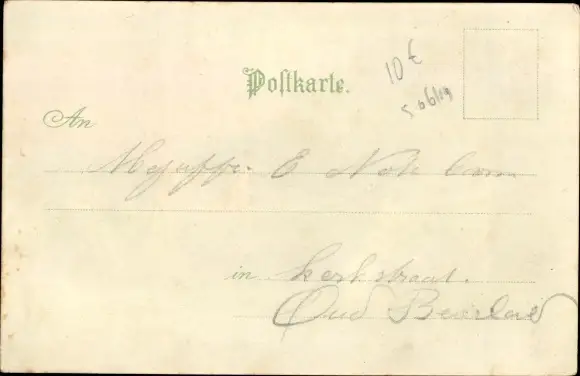 Postkarte.
10 €
An
Mejuffr. E Note boom
in Kerkstraat.
Oud Beierland